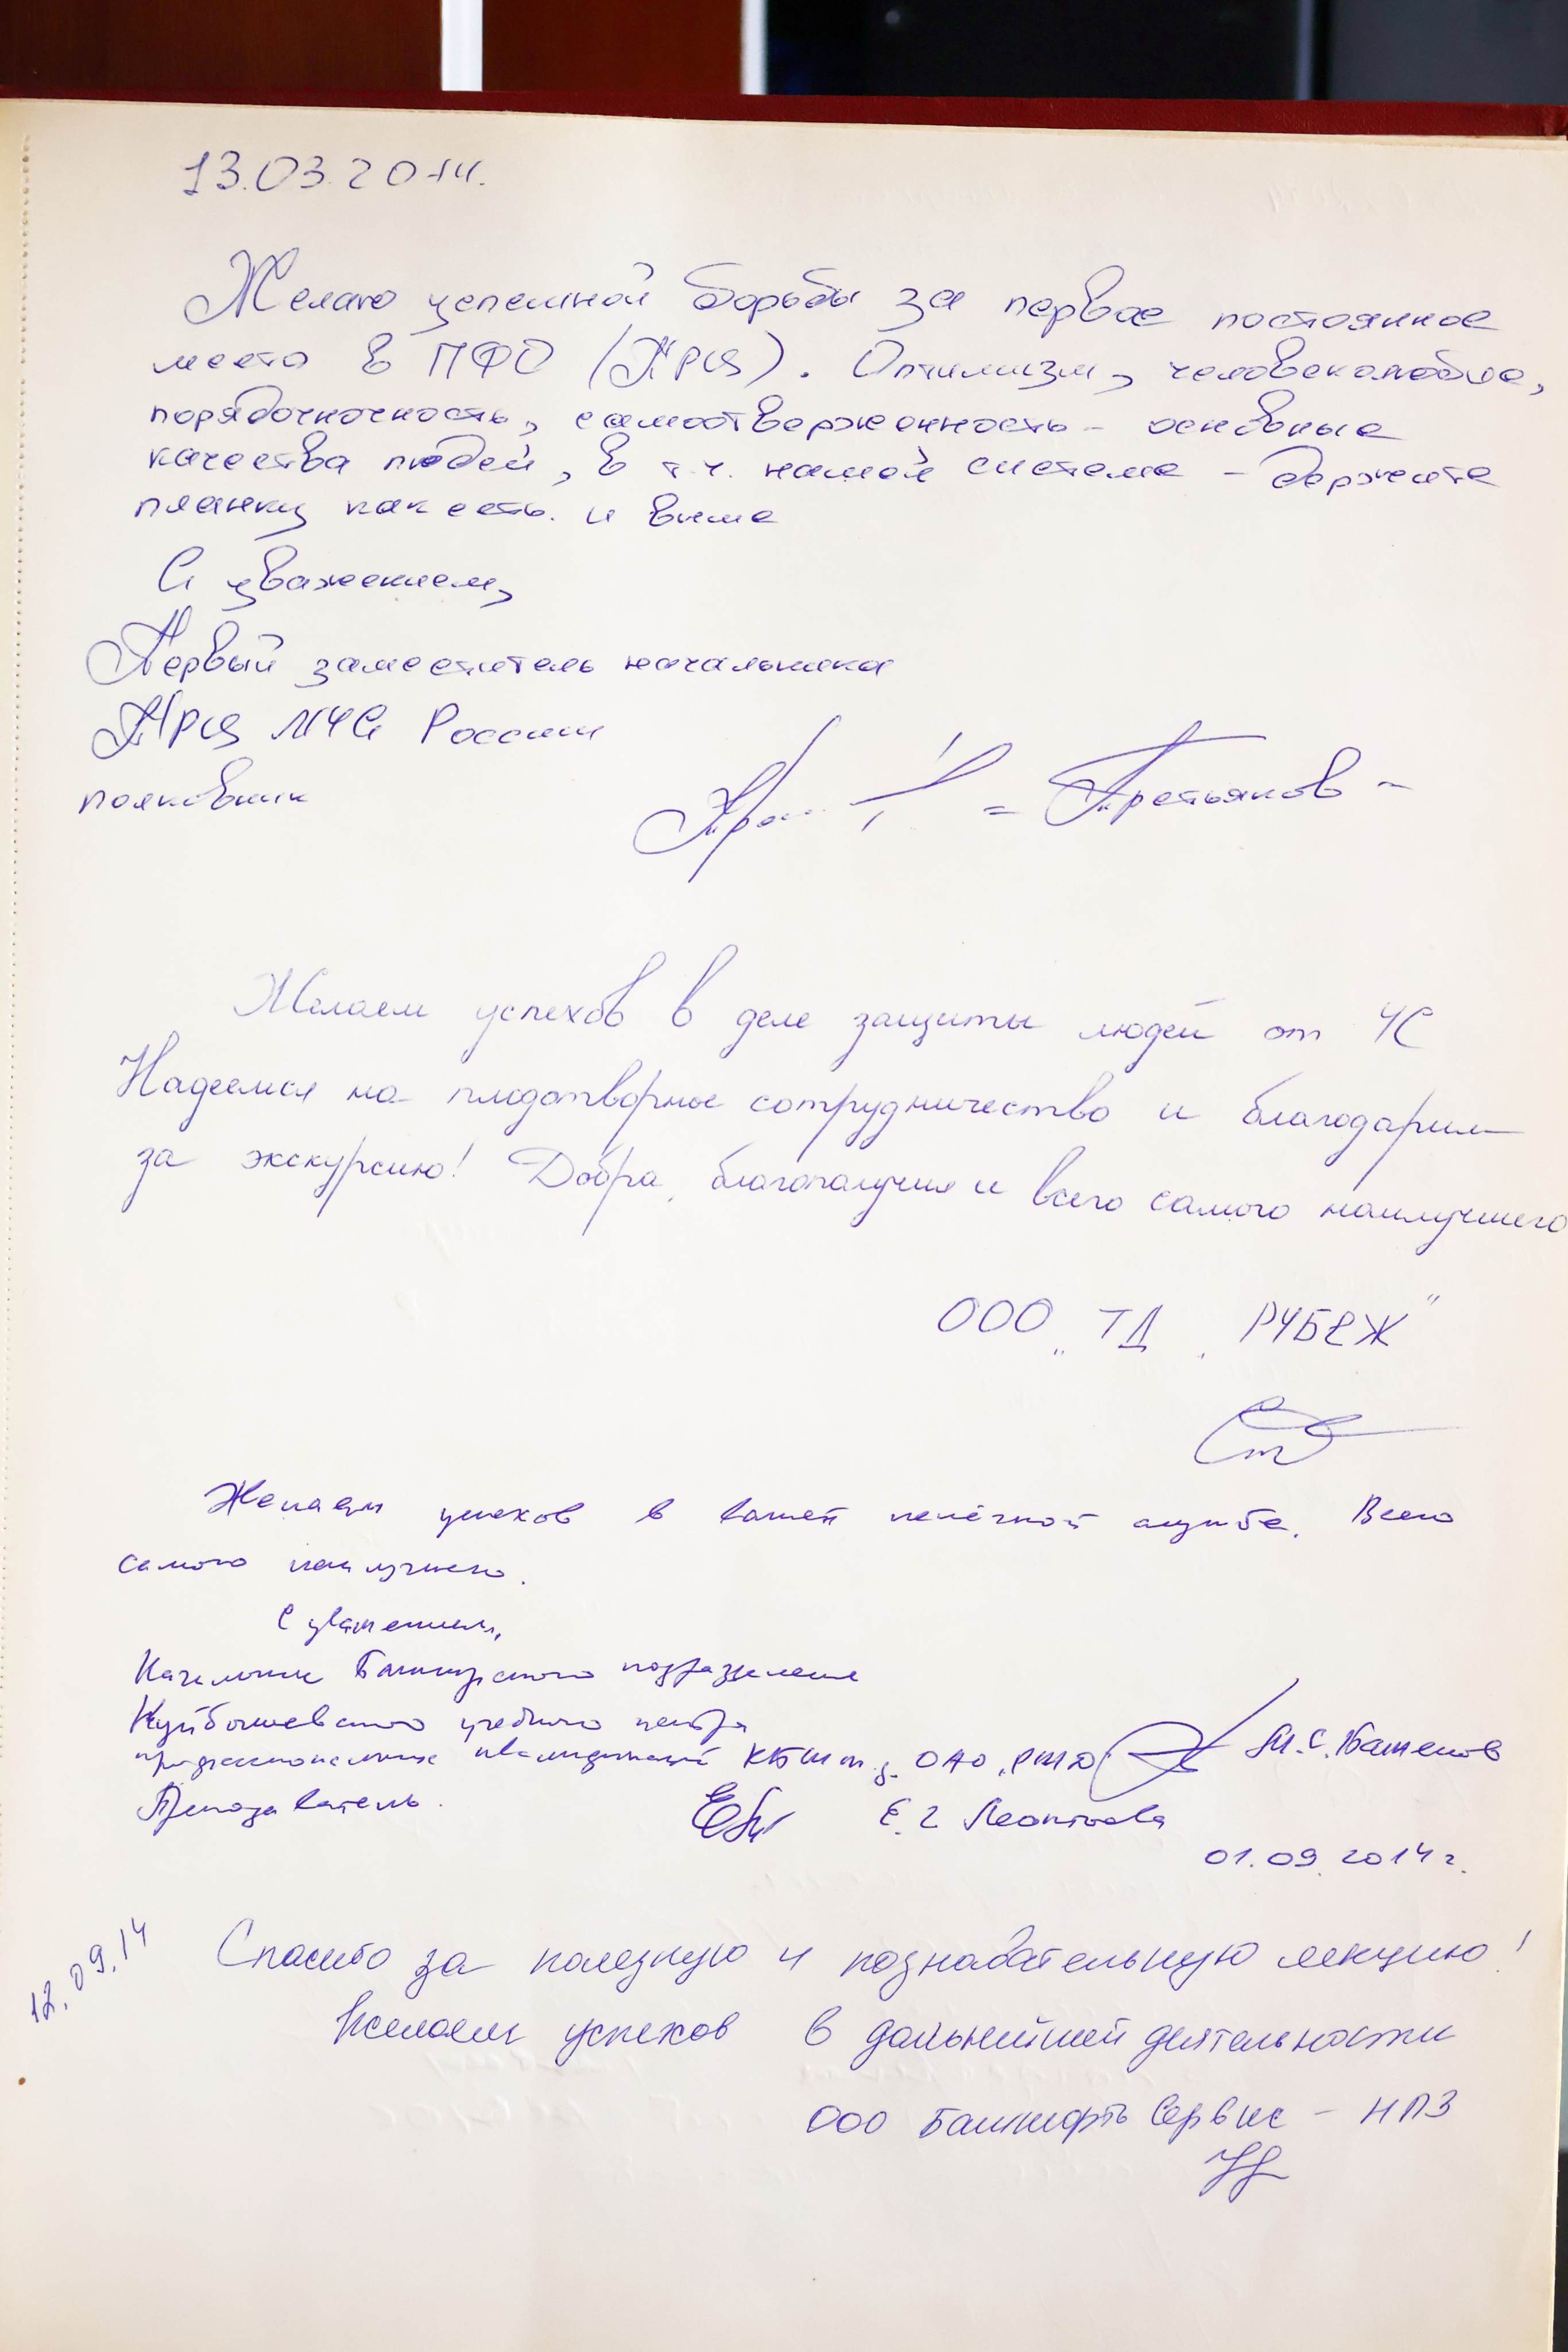 13.03.2014.
Желаю успешной борьбы за первое постоянное
место в ПФО (ПРЦ). Оптимизм, человеколюбие,
порядочночность, самоотверженность - основные
качества людей, в т.ч. нашей системе - держите
планку как есть. и выше
С уважением,
Первый заместитель начальника
ПРЦ МЧС России
полковник
- Третьяков -
Желаем успехов в деле защиты людей от ЧС
Надеемся на плодотворное сотрудничество и благодарим
за экскурсию! Добра, благополучия и всего самого наилучшего
ООО „ТД „РУБЕЖ"
Желаем успехов в вашей нелёгкой службе. Всего
самого наилучшего.
С уважением,
Начальник Башкирского подразделения
Куйбышевского учебного центра
профессиональных квалификаций КБШ ж.д. ОАО „РЖД" М.С. Баженов
Преподаватель. Е.Г Леонтьева
01.09.2014г.
12.09.14
Спасибо за полезную и познавательную лекцию!
Желаем успехов в дальнейшей деятельности
ООО Башнефть Сервис - НПЗ